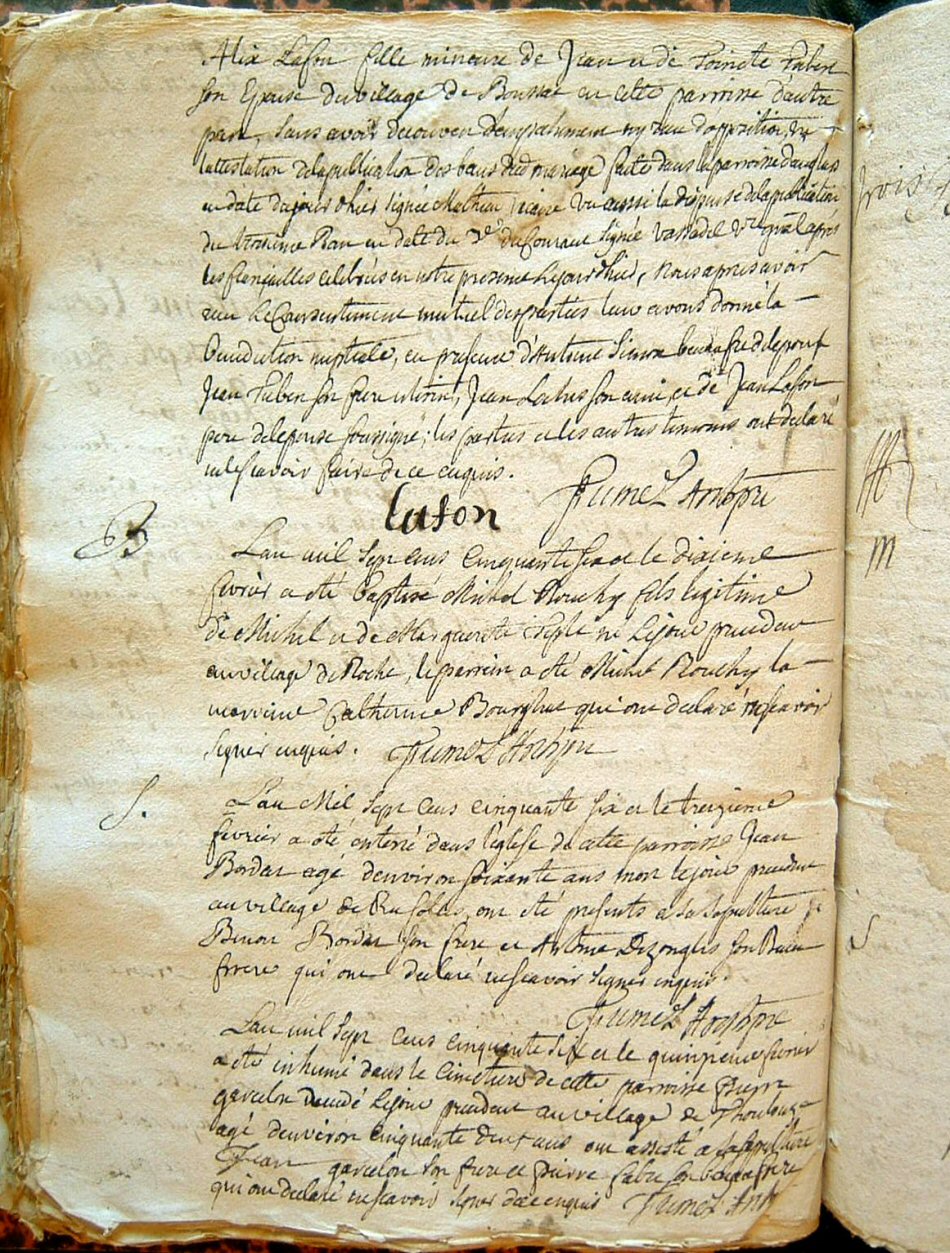 Alix Lafon fille mineure de Jean et de Toinete Taben
son Epouse du village de Boussac en cette parroisse d'autre
part, sans avoir decouvert d'empechement ny eu d'opposition, vu
l'attestation de la publication des bans dud mariage faite dans la parroisse
en date du jour d'hier signée Mathieu vicaire vu aussi la dispense de la publication
du troisième Ban en date du 3e du courant signée Vassadel vic gnal après
les fiançailles celebrées en notre presence le jour d'hier, Nous apres avoir
receu le Consentement mutuel des parties leur avons donné la
Benediction nuptiale, en presence d'Antoine Simon beaufrere de lepoux
Jean Taben son frere uterin, Jean son ami, et de Jean Lafon
pere de lepouse soussigné; les parties et les autres temoins ont declaré
ne scavoir faire de ce enquis.
Lafon Jrumel Arch pre
B
Lan mil sept cens cinquante six et le dixieme
fevrier a eté Baptisé Michel Rouchy fils legitime
de Michel et de Marguerite né le jour precedent
au village de Roche, le parrein a eté Michel Rouchy la
marreine Catherine qui ont declaré ne scavoir
signer enquis. Jrumel Arch pre
S.
Lan Mil sept cens cinquante six et le treizieme
fevrier a eté enterré dans l'eglise de cette parroisse Jean
Bordas agé d'environ soixante ans mort le jour precedent
au village de ont été presents a sa sepulture
Benoit Bordas son frere et Antoine son Beau
frere qui ont declaré ne scavoir signer enquis.
Jrumel Arch pre
Lan mil sept cens cinquante six et le quinzieme fevrier
a eté inhumé dans le Cimetiere de cette parroisse Pierre
garcelon decedé le jour precedent au village de
agé d'environ cinquante deux ans ont assisté a sa sepulture
Jean garcelon son frere et Pierre Fabre son beaufrere
qui ont declaré ne scavoir signer de ce enquis Jrumel Arch
trois
m
S